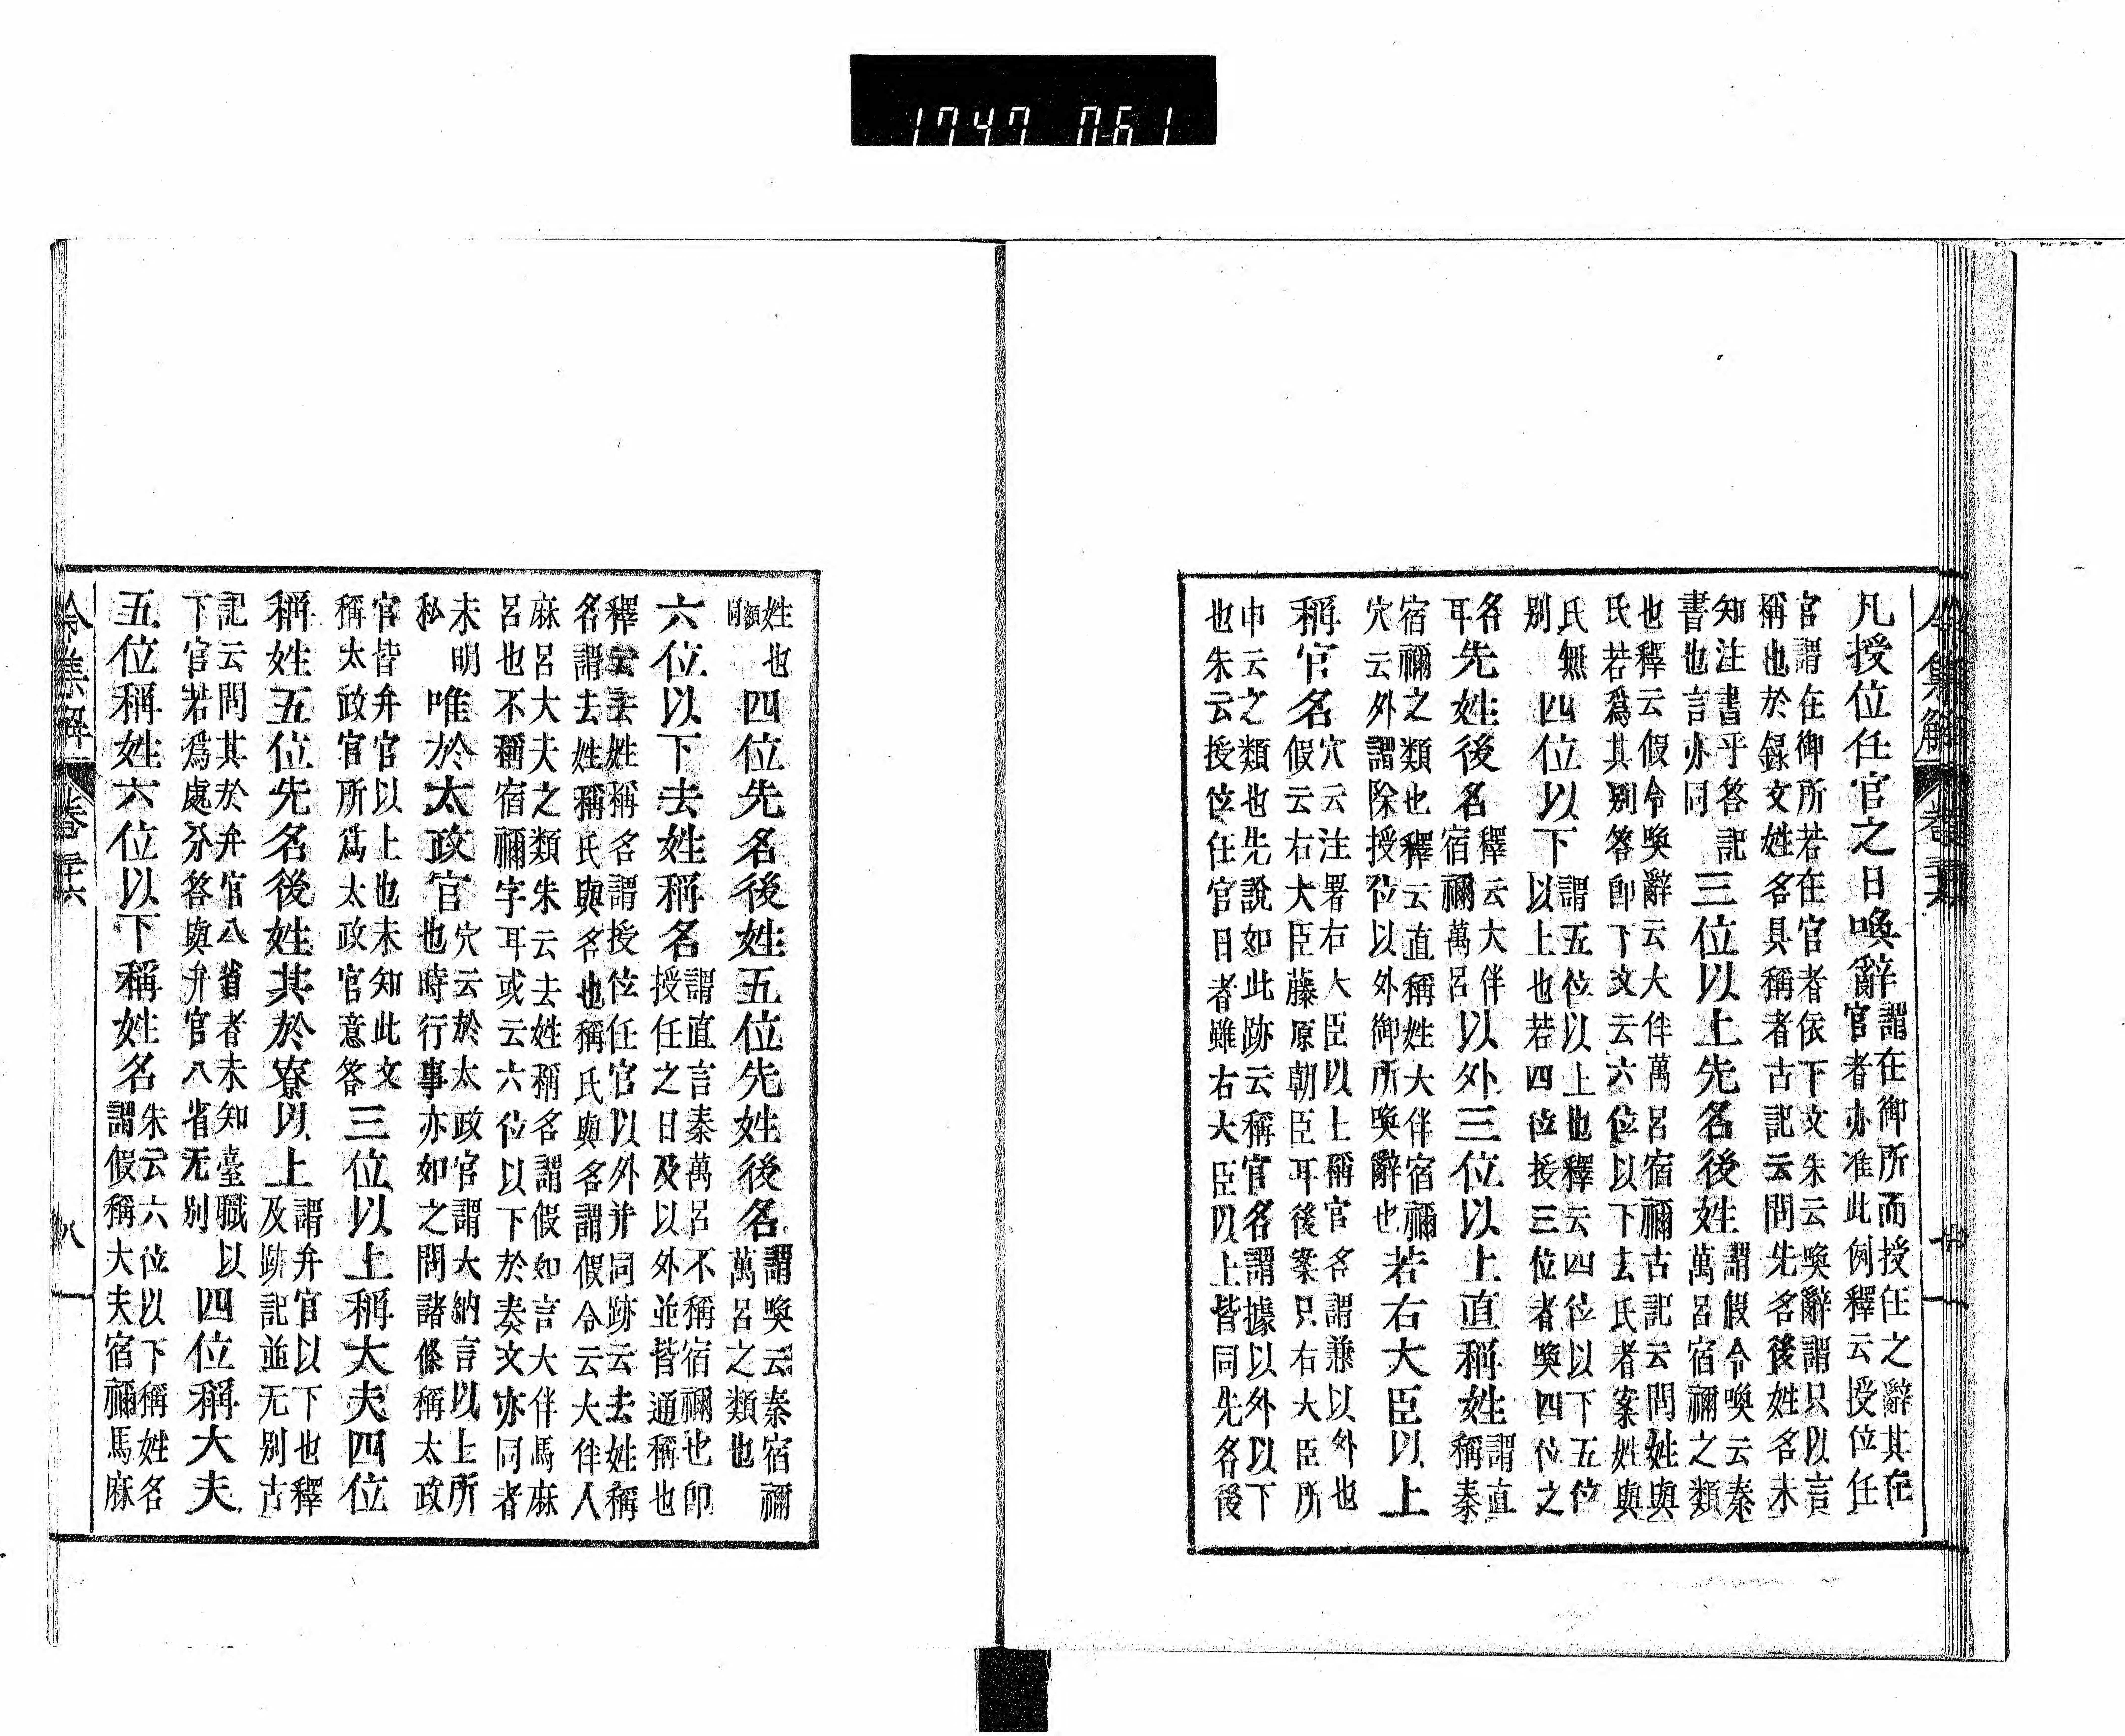 1747 061
令集解 卷三十六
凡授位任官之日喚辭
謂在御所而授任之辭其在
官者亦准此例釋云授位任
官謂在御所若在官者依下文朱云喚辭謂只以言
稱也於録文姓名具稱者古記云問先名後姓名未
知注書乎答記
書也言亦同
三位以上先名後姓
謂假令喚云秦
萬呂宿禰之類
也釋云假令喚辭云大伴萬呂宿禰古記云問姓與
氏若爲其別答卽下文云六位以下去氏者案姓與
氏無
別
四位以下
謂五位以上也釋云四位以下五位
以上也若四位授三位者喚四位之
名
耳
先姓後名
釋云大伴
宿禰萬呂
以外三位以上直稱姓
謂直
稱秦
宿禰之類也釋云直稱姓大伴宿禰
穴云外謂除授位以外御所喚辭也
若右大臣以上
稱官名
穴云注署右大臣以上稱官名謂兼以外也
假云右大臣藤原朝臣耳後案只右大臣所
巾云之類也先說如此跡云稱官名謂據以外以下
也朱云授位任官日者雖右大臣以上皆同先名後
姓也
額同
四位先名後姓五位先姓後名
謂喚云秦宿禰
萬呂之類也
六位以下去姓稱名
謂直言秦萬呂不稱宿禰也卽
授任之日及以外並皆通稱也
釋云去姓稱名謂授位任官以外并同跡云去姓稱
名謂去姓稱氏與名也稱氏與名謂假令云大伴人
麻呂大夫之類朱云去姓稱名謂假如言大伴馬麻
呂也不稱宿禰字耳或云六位以下於奏文亦同者
未明
私
唯於太政官
穴云於太政官謂大納言以上所
也時行事亦如之問諸條稱太政
官皆弁官以上也未知此文
稱太政官所爲太政官意答
三位以上稱大夫四位
稱姓五位先名後姓其於寮以上
謂弁官以下也釋
及跡記並无別古
記云問其於弁官八省者未知臺職以
下官若爲處分答與弁官八省无別
四位稱大夫
五位稱姓六位以下稱姓名
朱云六位以下稱姓名
謂假稱大夫宿禰馬麻
令集解 卷三十六 八